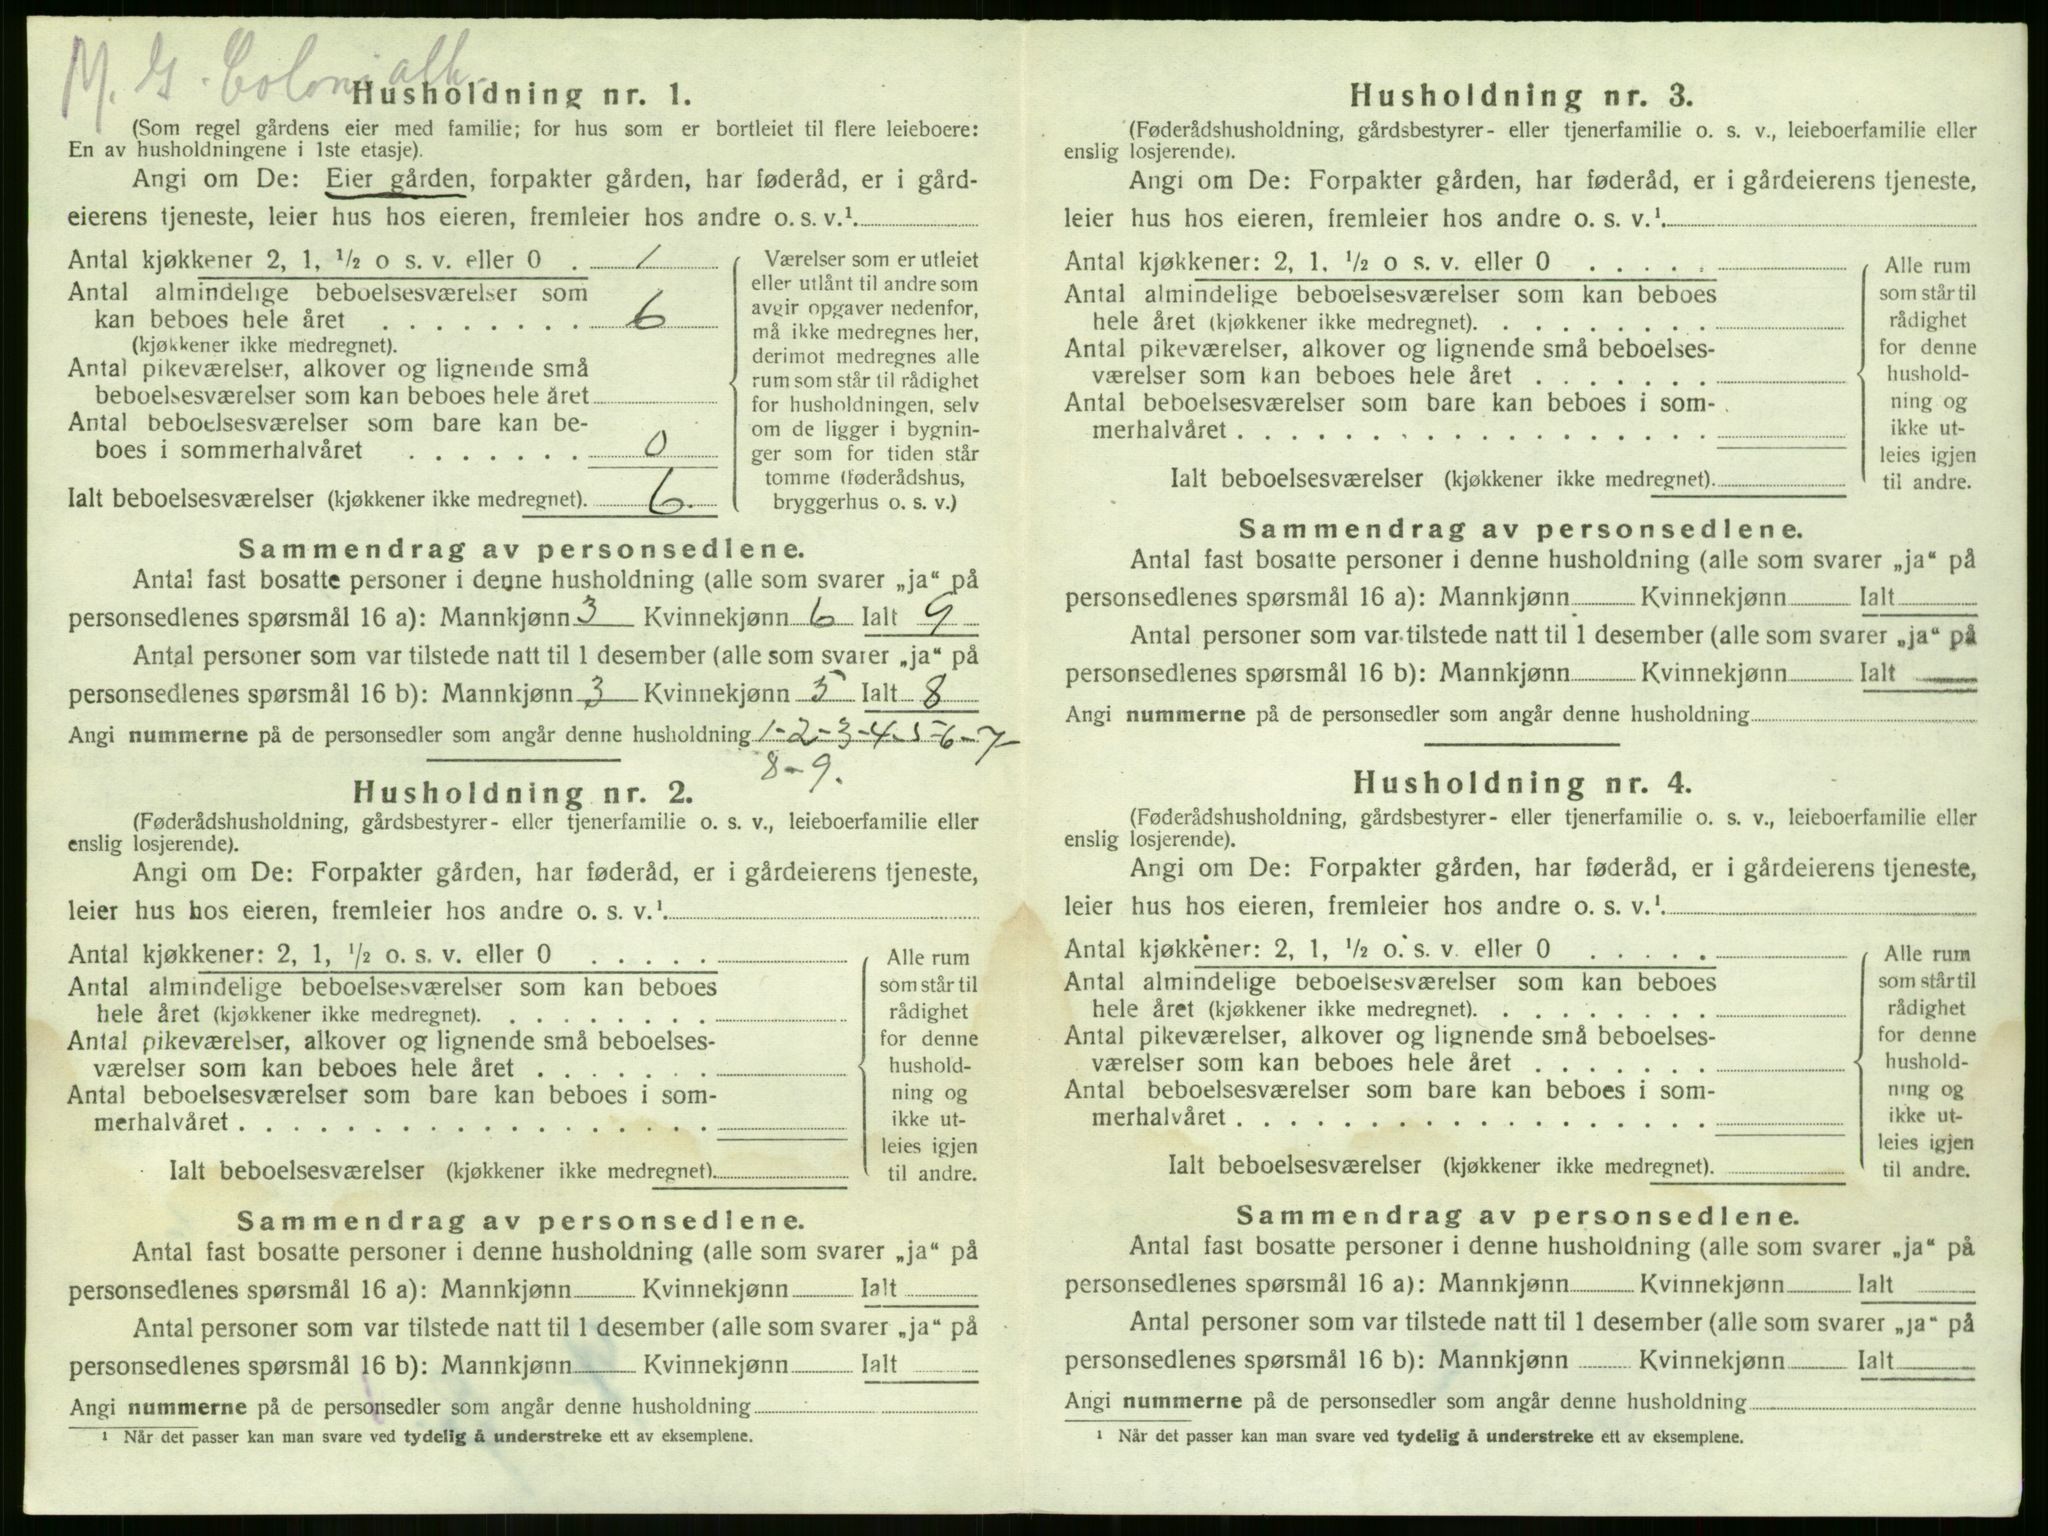 M. G. Colonialh.
Husholdning nr. 1.
(Som regel gårdens eier med familie; for hus som er bortleiet til flere leieboere:
En av husholdningene i 1ste etasje).
Angi om De: Eier gården, forpakter gården, har føderåd, er i gård-
eierens tjeneste, leier hus hos eieren, fremleier hos andre o. s. v.¹.
Antal kjøkkener 2, 1, ½ o s. v. eller 0 . 1
Antal almindelige beboelsesværelser som
kan beboes hele året . . . . . . . . 6
(kjøkkener ikke medregnet).
Antal pikeværelser, alkover og lignende små
beboelsesværelser som kan beboes hele året
Antal beboelsesværelser som bare kan be-
boes i sommerhalvåret . . . . . . . 0
Ialt beboelsesværelser (kjøkkener ikke medregnet). 6.
Værelser som er utleiet
eller utlånt til andre som
avgir opgaver nedenfor,
må ikke medregnes her,
derimot medregnes alle
rum som står til rådighet
for husholdningen, selv
om de ligger i bygnin-
ger som for tiden står
tomme (føderådshus,
bryggerhus o. s. v.)
Sammendrag av personsedlene.
Antal fast bosatte personer i denne husholdning (alle som svarer „ja“ på
personsedlenes spørsmål 16 a): Mannkjønn 3 Kvinnekjønn 6 Ialt 9
Antal personer som var tilstede natt til 1 desember (alle som svarer „ja“ på
personsedlenes spørsmål 16 b): Mannkjønn 3 Kvinnekjønn 5 Ialt 8
Angi nummerne på de personsedler som angår denne husholdning 1-2-3-4-5-6-7-
8-9.
Husholdning nr. 2.
(Føderådshusholdning, gårdsbestyrer- eller tjenerfamilie o. s. v., leieboerfamilie eller
enslig losjerende).
Angi om De: Forpakter gården, har føderåd, er i gårdeierens tjeneste,
leier hus hos eieren, fremleier hos andre o. s. v.¹.
Antal kjøkkener: 2, 1, ½ o. s. v. eller 0 . . . . .
Antal almindelige beboelsesværelser som kan beboes
hele året (kjøkkener ikke medregnet). . . . . . . . .
Antal pikeværelser, alkover og lignende små beboelses-
værelser som kan beboes hele året . . . . . . .
Antal beboelsesværelser som bare kan beboes i som-
merhalvåret . . . . . . . . . . . . . . . . . .
Ialt beboelsesværelser (kjøkkener ikke medregnet).
Alle rum
som står til
rådighet
for denne
hushold-
ning og
ikke ut-
leies igjen
til andre.
Sammendrag av personsedlene.
Antal fast bosatte personer i denne husholdning (alle som svarer „ja“ på
personsedlenes spørsmål 16 a): Mannkjønn Kvinnekjønn Ialt
Antal personer som var tilstede natt til 1 desember (alle som svarer „ja“ på
personsedlenes spørsmål 16 b): Mannkjønn Kvinnekjønn Ialt
Angi nummerne på de personsedler som angår denne husholdning
¹ Når det passer kan man svare ved tydelig å understreke ett av eksemplene.
Husholdning nr. 3.
(Føderådshusholdning, gårdsbestyrer- eller tjenerfamilie o. s. v., leieboerfamilie eller
enslig losjerende).
Angi om De: Forpakter gården, har føderåd, er i gårdeierens tjeneste,
leier hus hos eieren, fremleier hos andre o. s. v.¹.
Antal kjøkkener: 2, 1, ½ o s. v. eller 0 . . . . .
Antal almindelige beboelsesværelser som kan beboes
hele året (kjøkkener ikke medregnet). . . . . . . . .
Antal pikeværelser, alkover og lignende små beboelses-
værelser som kan beboes hele året . . . . . . .
Antal beboelsesværelser som bare kan beboes i som-
merhalvåret . . . . . . . . . . . . . . . . . .
Ialt beboelsesværelser (kjøkkener ikke medregnet).
Alle rum
som står til
rådighet
for denne
hushold-
ning og
ikke ut-
leies igjen
til andre.
Sammendrag av personsedlene.
Antal fast bosatte personer i denne husholdning (alle som svarer „ja“ på
personsedlenes spørsmål 16 a): Mannkjønn Kvinnekjønn Ialt
Antal personer som var tilstede natt til 1 desember (alle som svarer „ja“ på
personsedlenes spørsmål 16 b): Mannkjønn Kvinnekjønn Ialt
Angi nummerne på de personsedler som angår denne husholdning
Husholdning nr. 4.
(Føderådshusholdning, gårdsbestyrer- eller tjenerfamilie o. s. v., leieboerfamilie eller
enslig losjerende).
Angi om De: Forpakter gården, har føderåd, er i gårdeierens tjeneste,
leier hus hos eieren, fremleier hos andre o. s. v.¹.
Antal kjøkkener: 2, 1, ½ o. s. v. eller 0 . . . . .
Antal almindelige beboelsesværelser som kan beboes
hele året (kjøkkener ikke medregnet). . . . . . . . .
Antal pikeværelser, alkover og lignende små beboelses-
værelser som kan beboes hele året . . . . . . .
Antal beboelsesværelser som bare kan beboes i som-
merhalvåret . . . . . . . . . . . . . . . . . .
Ialt beboelsesværelser (kjøkkener ikke medregnet).
Alle rum
som står til
rådighet
for denne
hushold-
ning og
ikke ut-
leies igjen
til andre.
Sammendrag av personsedlene.
Antal fast bosatte personer i denne husholdning (alle som svarer „ja“ på
personsedlenes spørsmål 16 a): Mannkjønn Kvinnekjønn Ialt
Antal personer som var tilstede natt til 1 desember (alle som svarer „ja“ på
personsedlenes spørsmål 16 b): Mannkjønn Kvinnekjønn Ialt
Angi nummerne på de personsedler som angår denne husholdning
¹ Når det passer kan man svare ved tydelig å understreke ett av eksemplene.